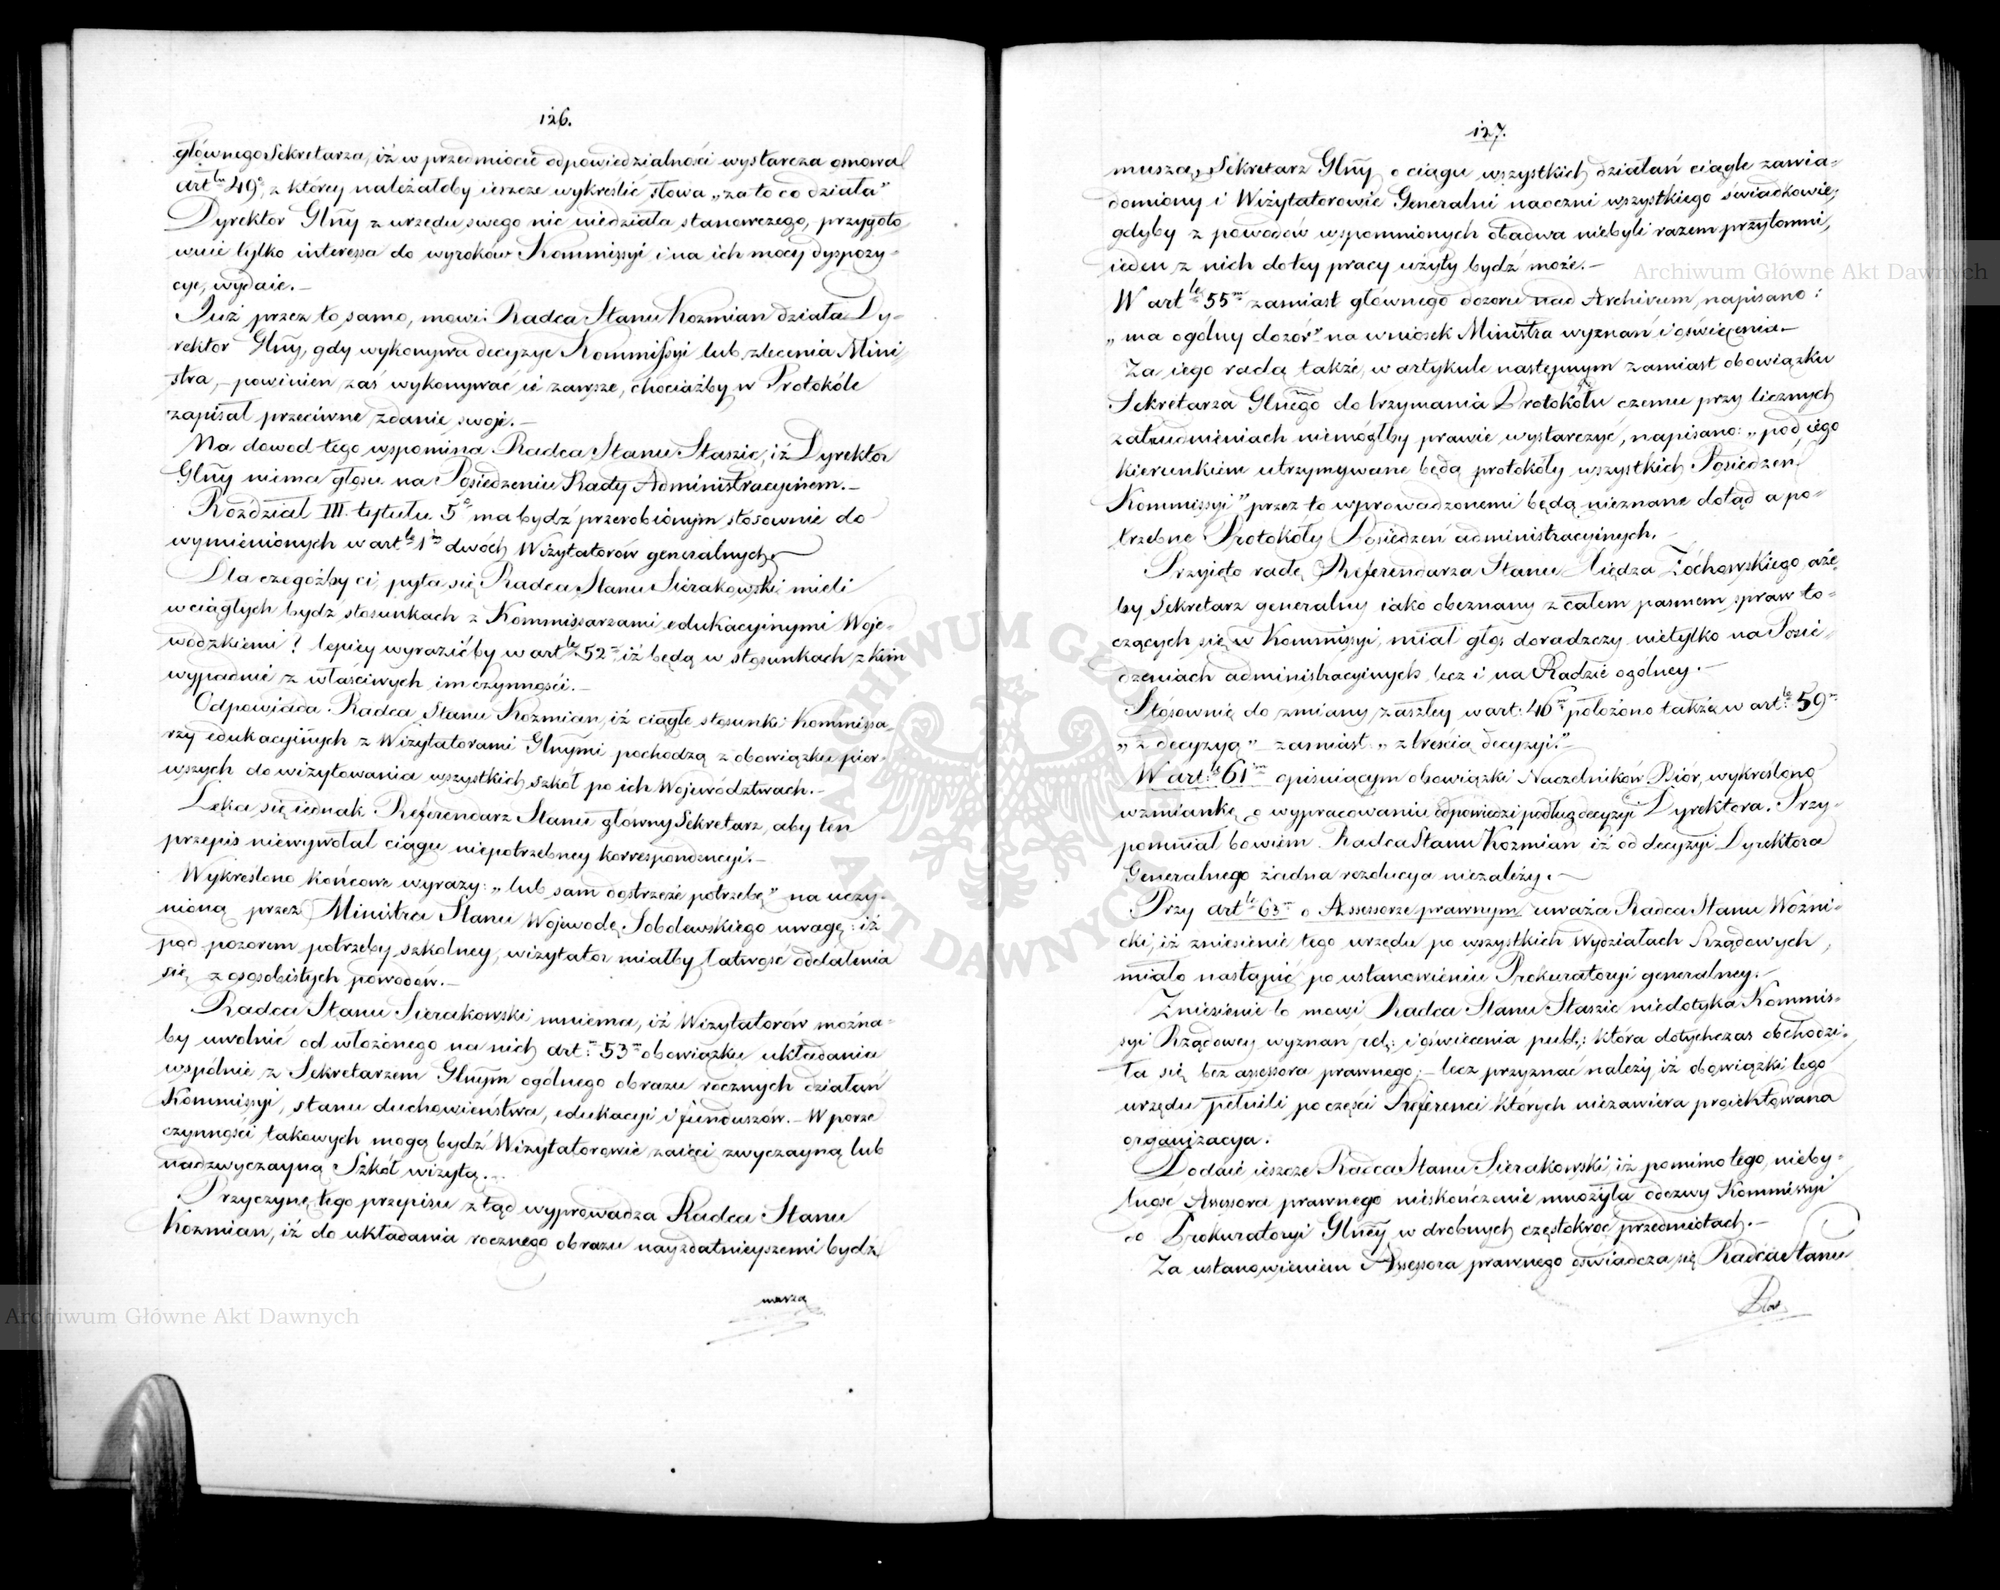 126.
głównego Sekretarza, iż w przedmiocie odpowiedzialności wystarcza osnowa
art<sup>łu</sup> 49<sup>o</sup>, z którey należałoby ieszcze wykreślić słowa „za to co działa”
Dyrektor Głny z urzędu swego nic niedziała stanowczego, przygoto
wuie tylko interessa do wyroków Kommissyi i na ich mocy dyspozy-
cye, wydaie.—
Już przez to samo, mowi Radca Stanu Kozmian działa Dy-
rektor Głny, gdy wykonywa decyzye Kommissyi lub zlecenia Mini
stra, — powinien zaś wykonywać ie zawsze, chociażby w Protokóle
zapisał przeciwne zdanie swoje.—
Na dowod tego wspomina Radca Stanu Staszic, iż Dyrektor
Głny niema głosu na Posiedzeniu Rady Administracyinem.—
Rozdział III. tytułu 5<sup>o</sup> ma bydź przerobionym stosownie do
wymienionych w art<sup>le</sup> 1<sup>m</sup> dwóch Wizytatorów generalnych.
Dla czegóżby ci, pyta się Radca Stanu Sierakowski mieli
w ciągłych bydź stosunkach z Kommissarzami edukacyinymi Woje-
wódzkiemi? lepiey wyrazićby w art<sup>le</sup> 52<sup>m</sup>, iż będą w stosunkach z kim
wypadnie z właściwych im czynności.—
Odpowiada Radca Stanu Kozmian, iż ciągłe stosunki Kommissa-
rzy edukacyinych z Wizytatorami Głnymi pochodzą z obowiązku pier-
wszych do wizytowania wszystkich szkół po ich Województwach.—
Lęka się iednak Referendarz Stanu główny Sekretarz, aby ten
przepis niewywołał ciągu niepotrzebney korrespondencyi.—
Wykreślono końcowe wyrazy: „lub sam dostrzeże potrzebę” na uczy-
nioną przez Ministra Stanu Wojewodę Sobolewskiego uwagę: iż
pod pozorem potrzeby szkolney, wizytator miałby łatwość oddalenia
się z osobistych powodów.—
Radca Stanu Sierakowski mniema, iż Wizytatorów można-
by uwolnić od włożonego na nich art: 53<sup>m</sup> obowiązku układania
wspólnie z Sekretarzem Głnym ogólnego obrazu rocznych działań
Kommissyi, stanu duchowieństwa, edukacyi i funduszów.— W porze
czynności takowych mogą bydź Wizytatorowie zaięci zwyczayną lub
nadzwyczayną Szkół wizytą.—
Przyczynę tego przepisu ztąd wyprowadza Radca Stanu
Kozmian, iż do układania rocznego obrazu nayzdatnieyszemi bydź
muszą
127.
muszą, Sekretarz Głny o ciągu wszystkich działań ciągle zawia-
domiony i Wizytatorowie Generalni naoczni wszystkiego świadkowie;
gdyby z powodów wspomnionych obadwa niebyli razem przytomni,
ieden z nich do tey pracy użyty bydź może.—
W art<sup>le</sup> 55<sup>m</sup> zamiast głównego dozoru nad Archivum, napisano:
„ma ogólny dozór” na wniosek Ministra wyznań i oświecenia—
Za iego radą także, w artykule następnym zamiast obowiązku
Sekretarza Głnego do trzymania Protokółu czemu przy licznych
zatrudnieniach niemógłby prawie wystarczyć, napisano: „pod iego
kierunkiem utrzymywane będą protokóły wszystkich Posiedzeń
Kommissyi” przez to wprowadzonemi będą nieznane dotąd a po-
trzebne Protokóły Posiedzeń administracyinych.
Przyięto radę Referendarza Stanu Xiędza Zóchowskiego, aże-
by Sekretarz generalny iako obeznany z całem pasmem spraw to-
czących się w Kommissyi, miał głos doradczy nietylko na Posie-
dzeniach administracyinych, lecz i na Radzie ogolney.—
Stosownie do zmiany zaszłey w art: 46<sup>m</sup> położono także w art<sup>le</sup> 59<sup>m</sup>
„z decyzyą” zamiast „z treścią decyzyi.”
W art:<sup>le</sup> 61<sup>m</sup> opisuiącym obowiązki Naczelników Biór, wykreślono
wzmiankę o wypracowaniu odpowiedzi podług decyzyi Dyrektora. Przy-
pomniał bowiem Radca Stanu Kozmian iż od decyzyi Dyrektora
Generalnego żadna rezolucya niezależy.—
Przy art<sup>le</sup> 63<sup>m</sup> o Assessorze prawnym uważa Radca Stanu Woźni-
cki, iż zniesienie tego urzędu po wszystkich Wydziałach Rządowych,
miało nastąpić po ustanowieniu Prokuratoryi generalney.
Zniesienie to mowi Radca Stanu Staszic niedotyka Kommis-
syi Rządowey wyznań rel: i oświecenia publ: która dotychczas obchodzi-
ła się bez assessora prawnego;— lecz przyznać należy, iż obowiązki tego
urzędu pełnili po części Referenci których niezawiera proiektowana
organizacya.
Dodaie ieszcze Radca Stanu Sierakowski, iż pomimo tego, nieby-
tność Assessora prawnego nieskończenie mnożyła odezwy Kommissyi
do Prokuratoryi Głney w drobnych częstokroć przedmiotach.—
Za ustanowieniem Assessora prawnego oświadcza się Radca Stanu
Archiwum Główne Akt Dawnych
Archiwum Główne Akt Dawnych
ARCHIWUM GŁÓWNE AKT DAWNYCH